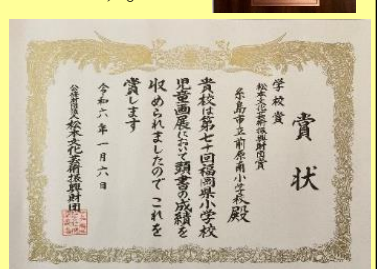 賞状
学校賞
松本文化芸術振興財団賞
糸島市立前原南小学校殿
貴校は第七十回福岡県小学校
児童画展において頭書の成績を
収められましたので これを
賞します
令和六年一月六日
公益財団法人松本文化芸術振興財団